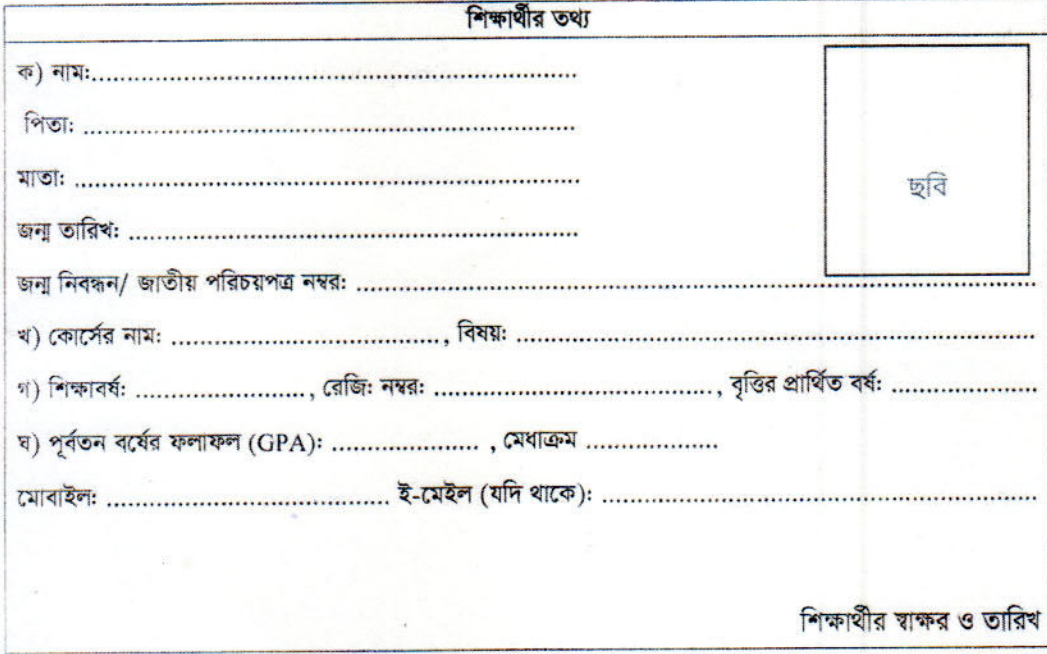 শিক্ষার্থীর তথ্য
ক) নামঃ................................................................
পিতাঃ ................................................................
মাতাঃ ................................................................
ছবি
জন্ম তারিখঃ ..........................................................
জন্ম নিবন্ধন/ জাতীয় পরিচয়পত্র নম্বরঃ ................................................................................
খ) কোর্সের নামঃ ....................................., বিষয়ঃ ................................................................
গ) শিক্ষাবর্ষঃ ........................, রেজিঃ নম্বরঃ ......................................, বৃত্তির প্রার্থিত বর্ষঃ ....................
ঘ) পূর্বতন বর্ষের ফলাফল (GPA)ঃ ..................... , মেধাক্রম ..................
মোবাইলঃ ....................................... ই-মেইল (যদি থাকে)ঃ ............................................................
শিক্ষার্থীর স্বাক্ষর ও তারিখ